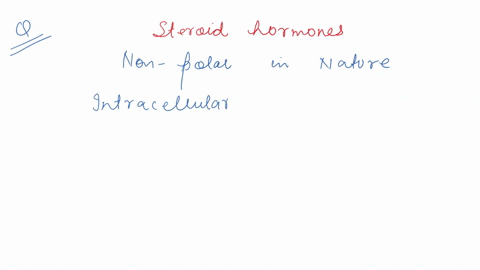 Q Steroid hormones
Non-polar in Nature
Intracellular